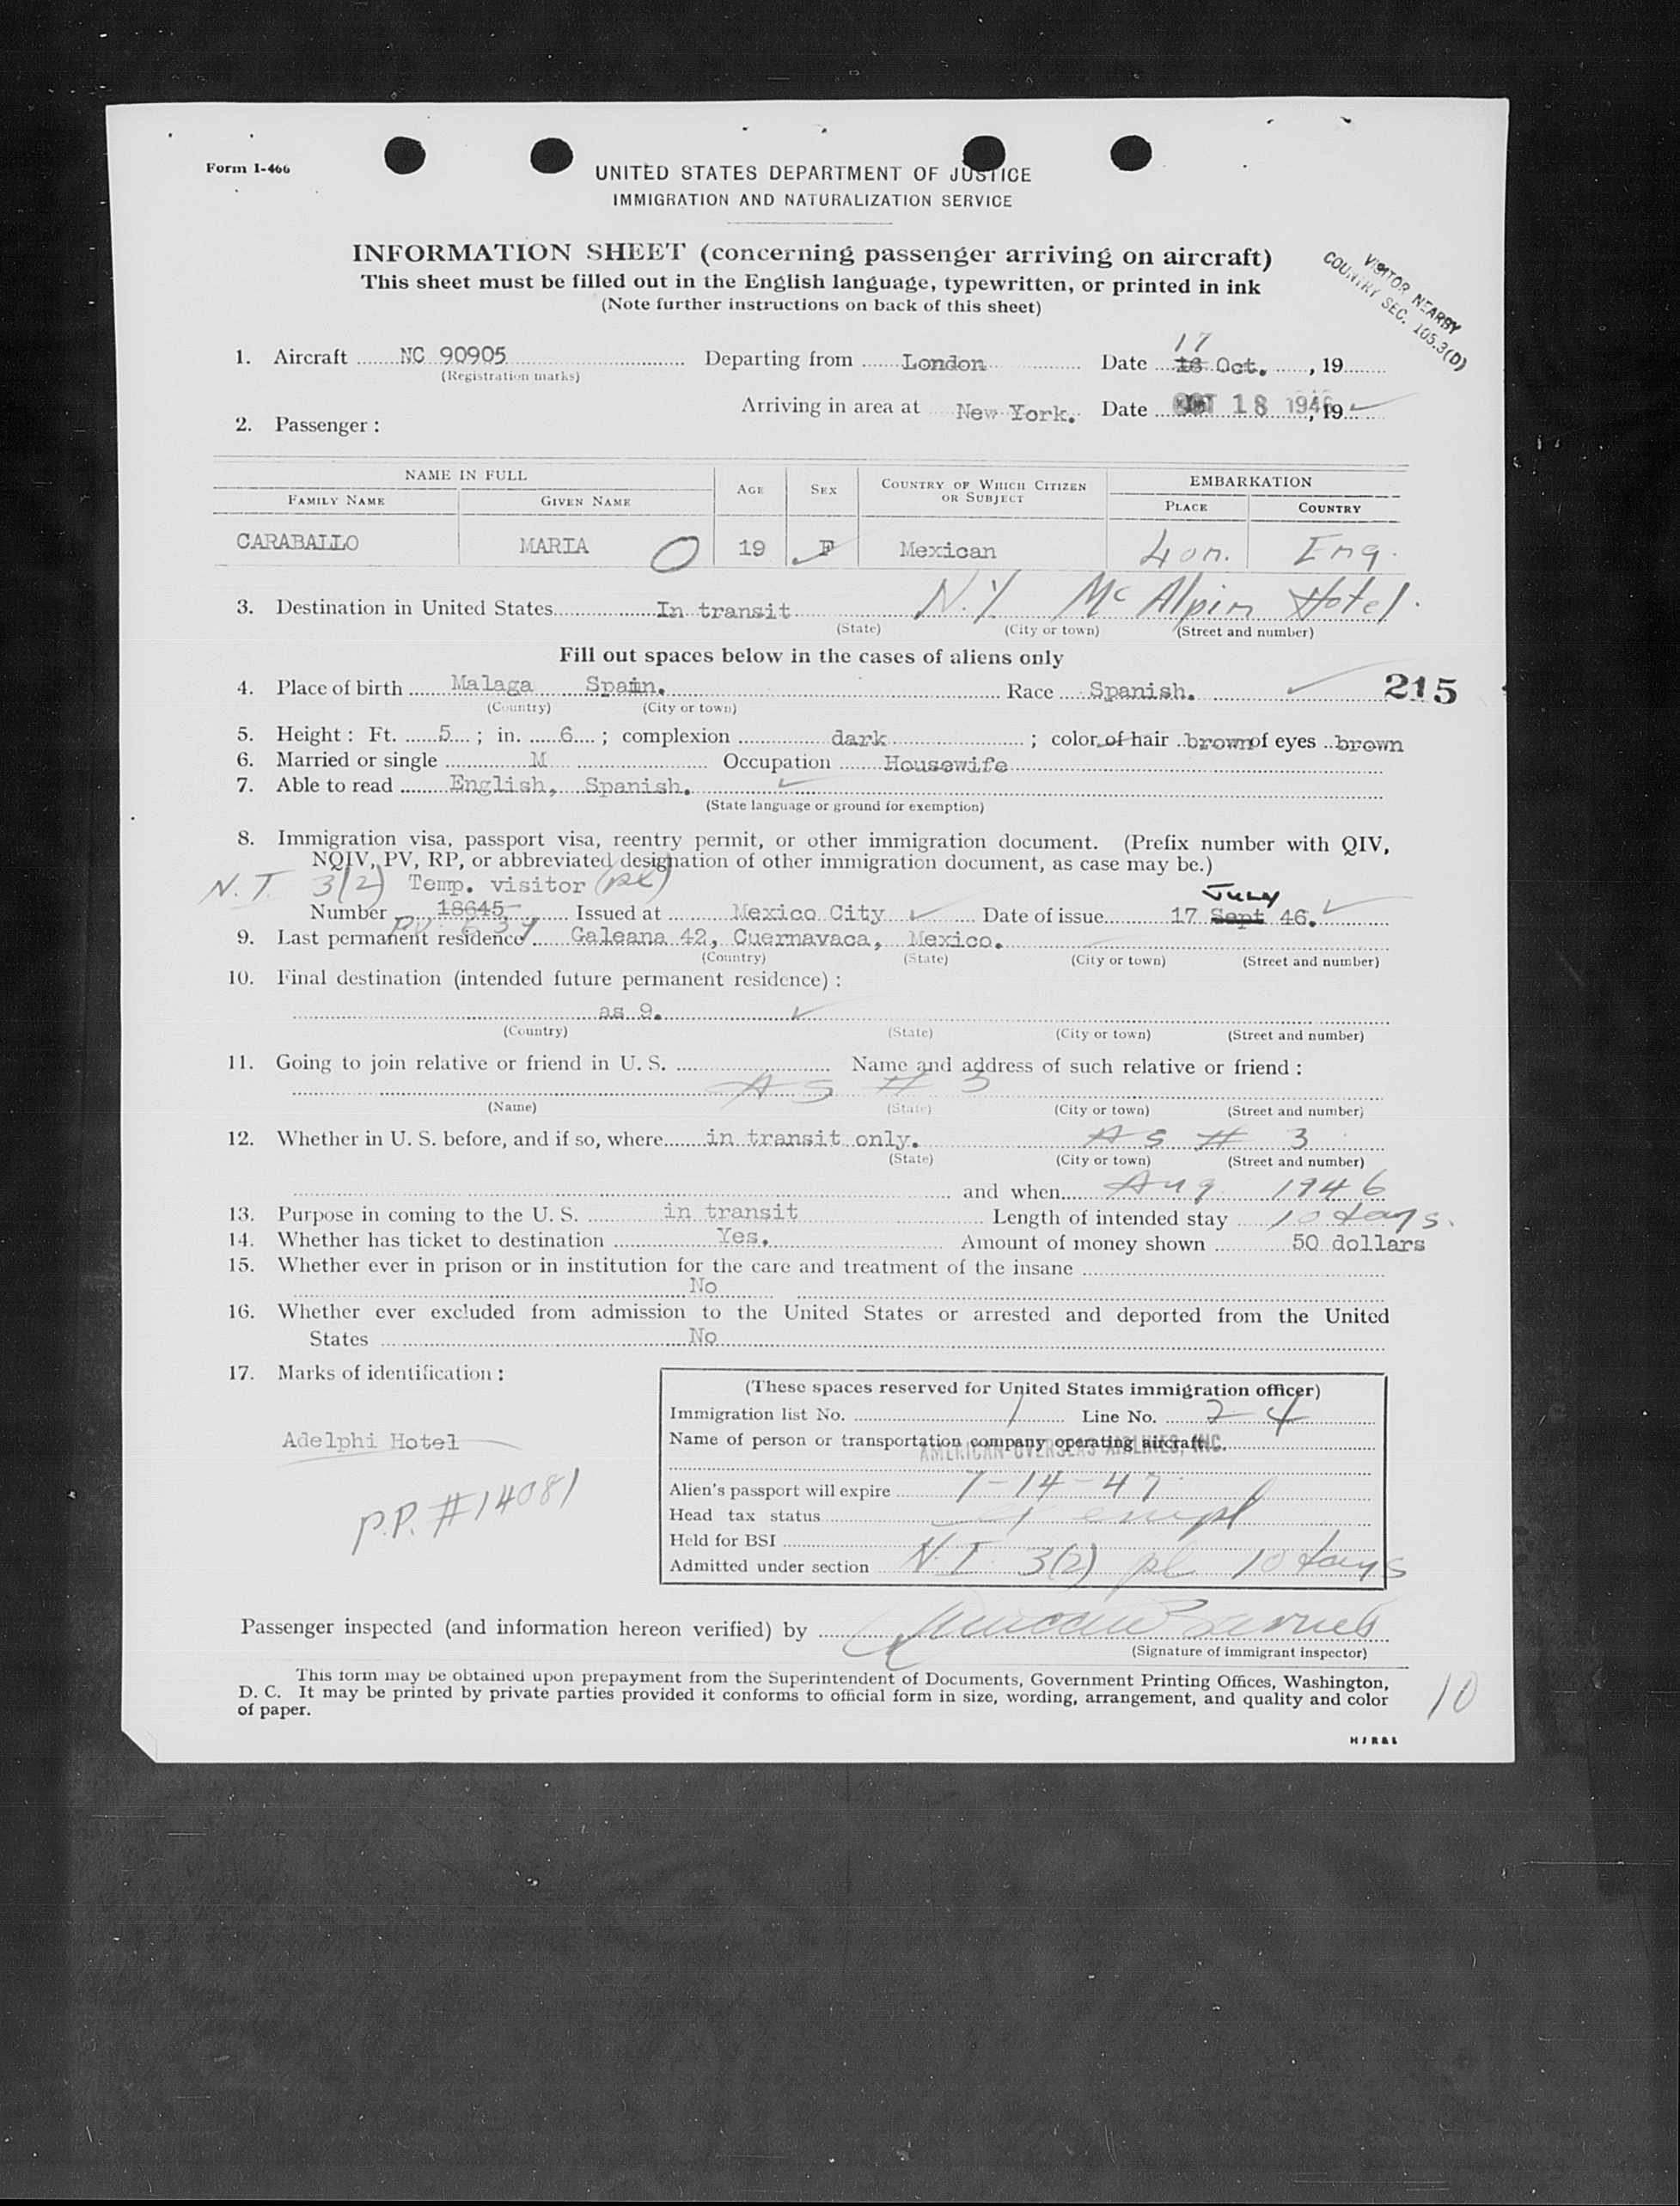 Form I-466
UNITED STATES DEPARTMENT OF JUSTICE
IMMIGRATION AND NATURALIZATION SERVICE
INFORMATION SHEET (concerning passenger arriving on aircraft)
This sheet must be filled out in the English language, typewritten, or printed in ink
(Note further instructions on back of this sheet)
VISITOR NEARBY
COUNTRY SEC. 105.3(D)
17
1. Aircraft NC 90905 Departing from London Date 18 Oct. , 19
(Registration marks)
Arriving in area at New York. Date OCT 18 1946, 19
2. Passenger :
NAME IN FULL
FAMILY NAME GIVEN NAME AGE SEX COUNTRY OF WHICH CITIZEN OR SUBJECT EMBARKATION
PLACE COUNTRY
CARABALLO MARIA O 19 F Mexican Lon. Eng.
3. Destination in United States In transit N.Y. Mc Alpin Hotel.
(State) (City or town) (Street and number)
Fill out spaces below in the cases of aliens only
4. Place of birth Malaga Spain. Race Spanish. 215
(Country) (City or town)
5. Height : Ft. 5 ; in. 6 ; complexion dark ; color of hair brown of eyes brown
6. Married or single M Occupation Housewife
7. Able to read English, Spanish.
(State language or ground for exemption)
8. Immigration visa, passport visa, reentry permit, or other immigration document. (Prefix number with QIV,
NQIV, PV, RP, or abbreviated designation of other immigration document, as case may be.)
N.T. 3(2) Temp. visitor
July
Number 18645 Issued at Mexico City Date of issue 17 Sept 46.
9. Last permanent residence Galeana 42, Cuernavaca, Mexico.
(Country) (State) (City or town) (Street and number)
10. Final destination (intended future permanent residence) :
as 9.
(Country) (State) (City or town) (Street and number)
11. Going to join relative or friend in U. S. Name and address of such relative or friend :
As # 3
(Name) (State) (City or town) (Street and number)
12. Whether in U. S. before, and if so, where in transit only. As # 3
(State) (City or town) (Street and number)
and when Aug. 1946
13. Purpose in coming to the U. S. in transit Length of intended stay 10 days.
14. Whether has ticket to destination Yes. Amount of money shown 50 dollars
15. Whether ever in prison or in institution for the care and treatment of the insane
No
16. Whether ever excluded from admission to the United States or arrested and deported from the United
States No
17. Marks of identification :
(These spaces reserved for United States immigration officer)
Immigration list No. 1 Line No. 24
Adelphi Hotel
Name of person or transportation company operating aircraft
AMERICAN OVERSEAS AIRLINES, INC.
P.P. #14081
Alien's passport will expire 7-14-47
Head tax status exempt
Held for BSI
Admitted under section N.T. 3(2) pl 10 days
Passenger inspected (and information hereon verified) by
(Signature of immigrant inspector)
This form may be obtained upon prepayment from the Superintendent of Documents, Government Printing Offices, Washington,
D. C. It may be printed by private parties provided it conforms to official form in size, wording, arrangement, and quality and color
of paper.
10